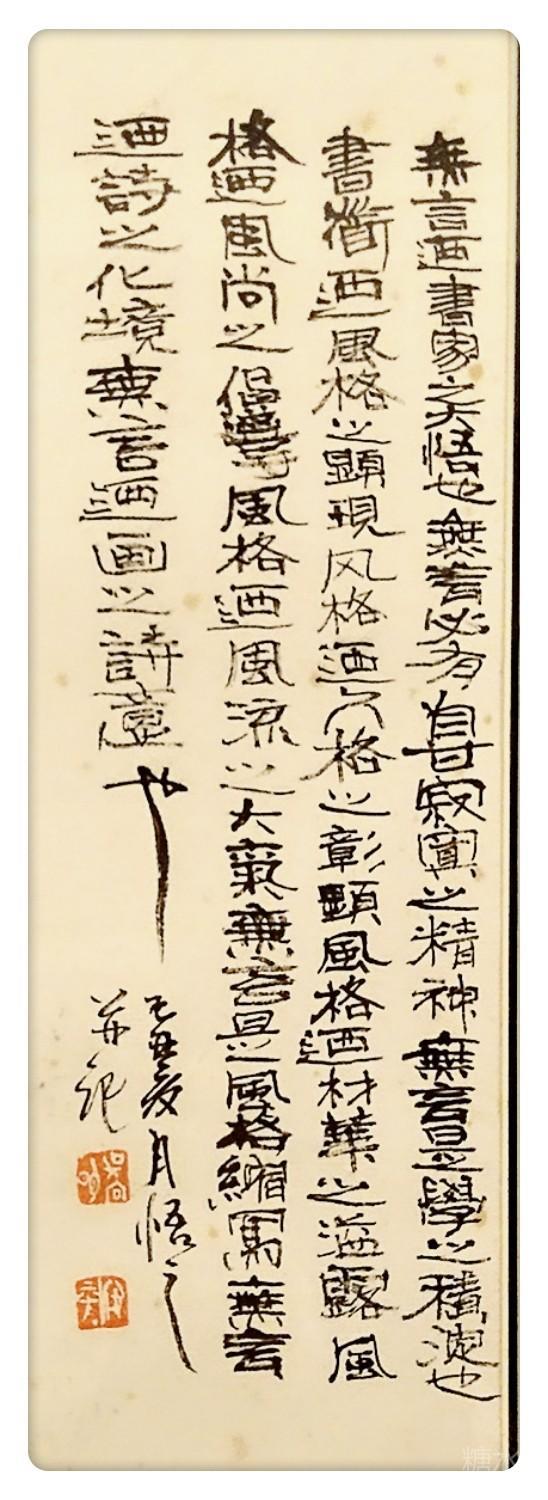 無言迺書家之大悟也無言必有自甘寂寞之精神無言是學之積澱也
書道迺風格之顕現风格迺人格之彰顕風格迺材華之溢露風
格迺風尚之倡導風格迺風流之大氣無言是風格縮寫無言
迺詩之化境無言迺画之詩意也
己亥夏月悟之
并记
糖水